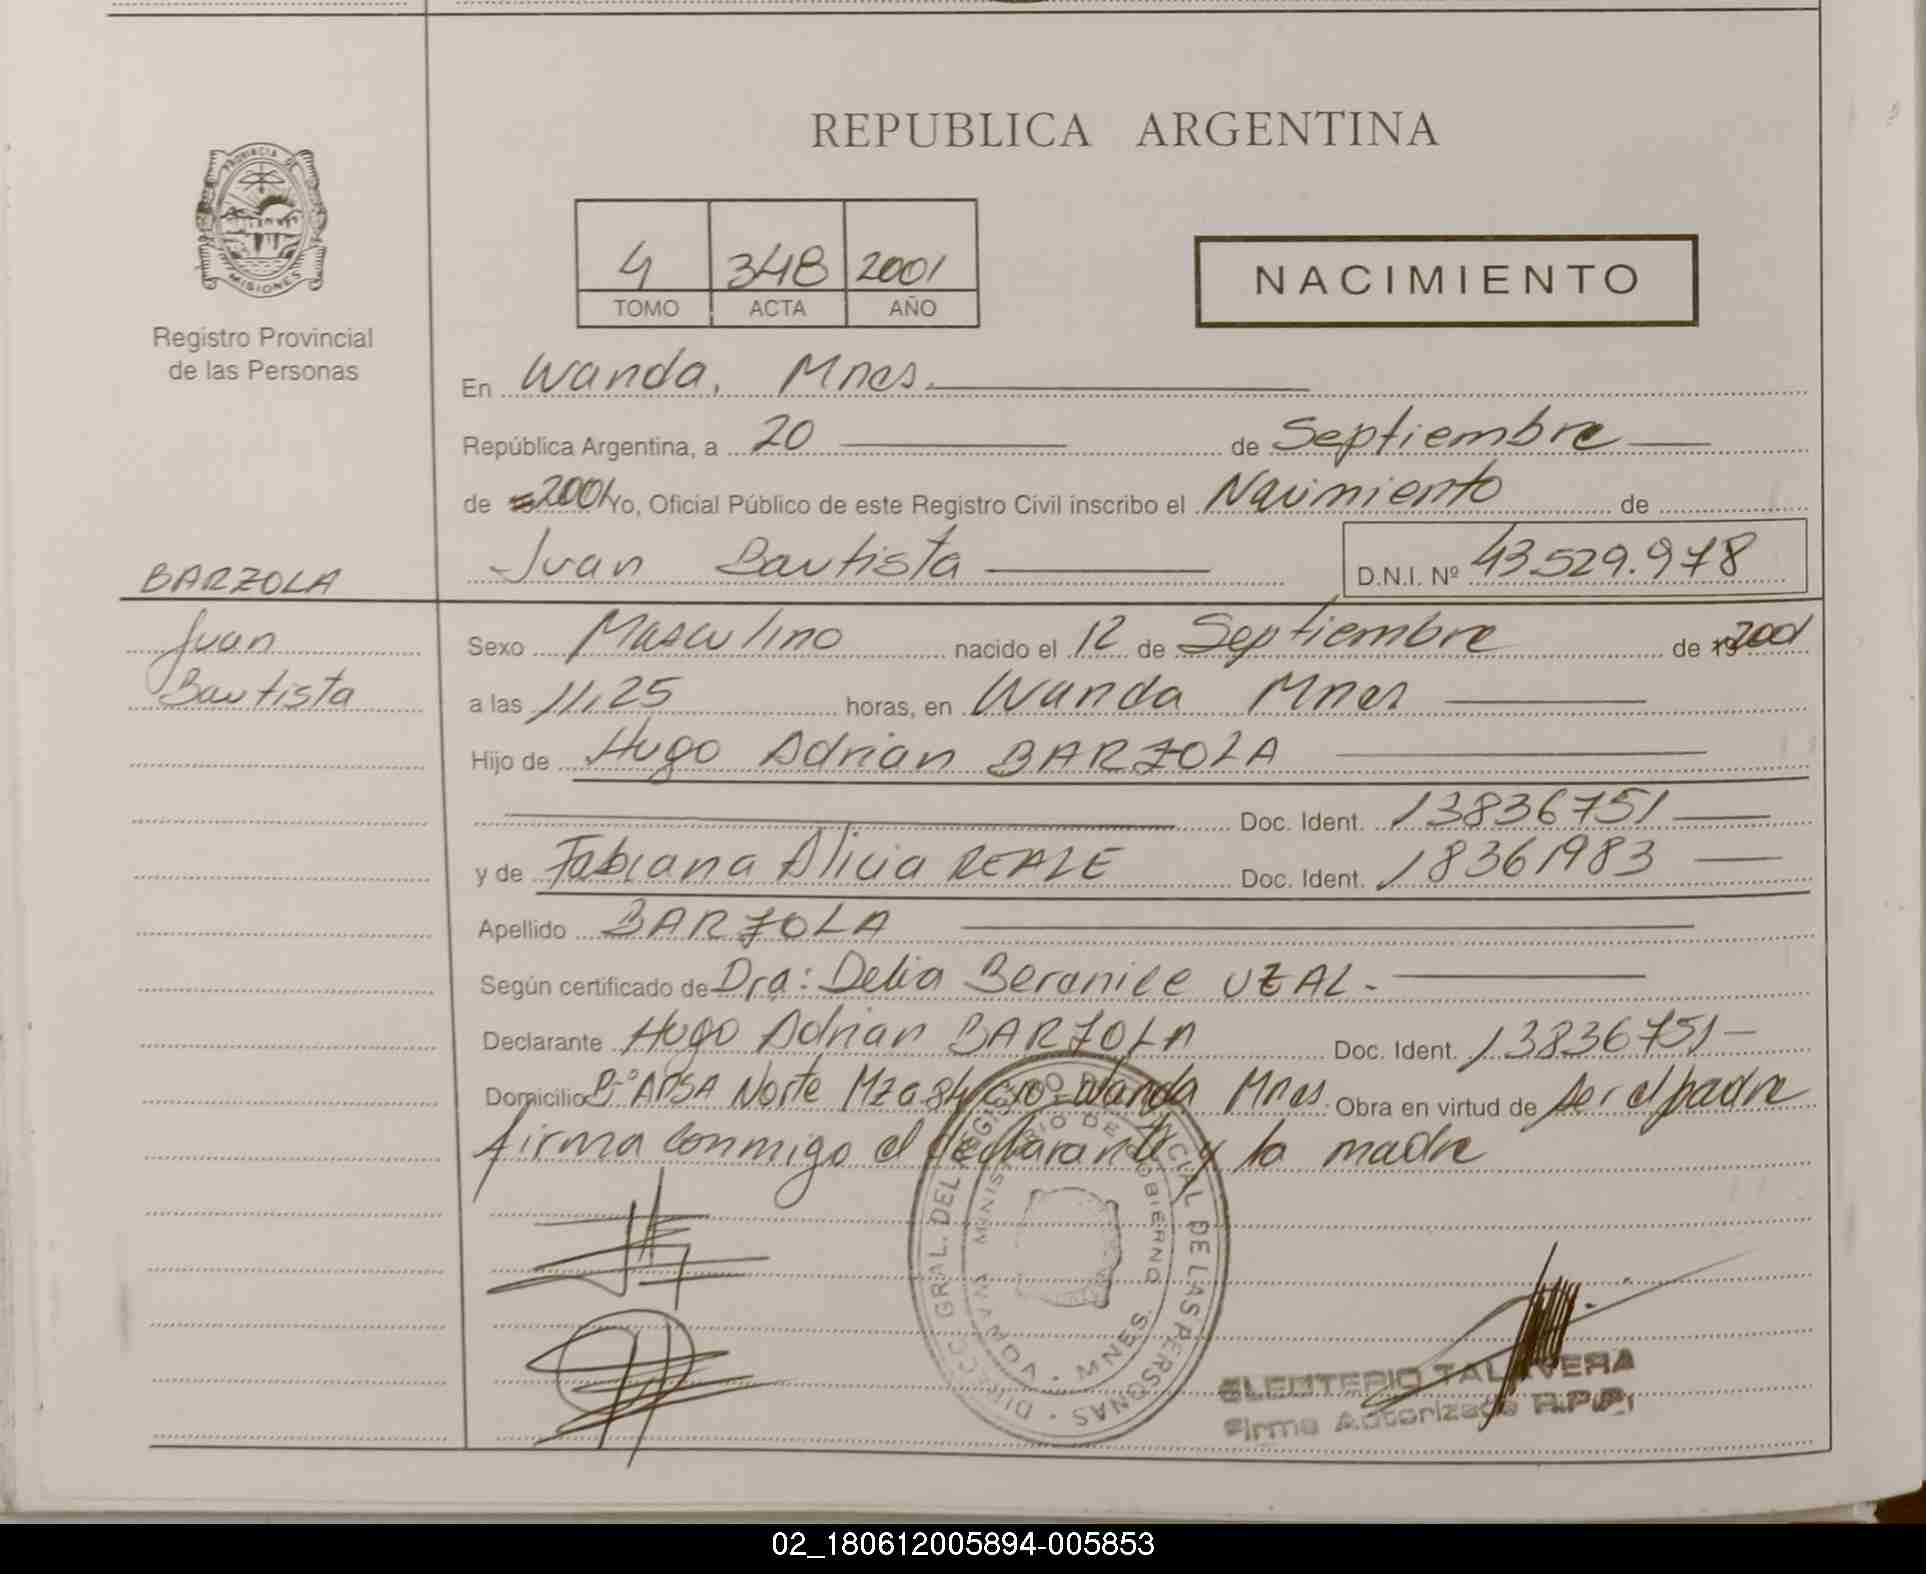 REPUBLICA ARGENTINA
PROVINCIA DE
MISIONES
Registro Provincial
de las Personas
4 348 2001
TOMO ACTA AÑO
NACIMIENTO
En Wanda, Mnes.
República Argentina, a 20 de Septiembre
de 2001 Yo, Oficial Público de este Registro Civil inscribo el Nacimiento de
Juan Bautista D.N.I. Nº 43.529.978
BARZOLA
Juan
Bautista
Sexo Masculino nacido el 12 de Septiembre de 2001
a las 11,25 horas, en Wanda Mnes
Hijo de Hugo Adrian BARZOLA
Doc. Ident. 13836751
y de Fabiana Alicia REALE Doc. Ident. 18361983
Apellido BARZOLA
Según certificado de Dra: Delia Beranice UZAL.
Declarante Hugo Adrian BARZOLA Doc. Ident. 13836751
Domicilio Bº APSA Norte Mza Wanda Mnes. Obra en virtud de ser el padre
firma conmigo el declarante y la madre
DIRECC. GRAL. DEL REGISTRO PROVINCIAL DE LAS PERSONAS
MINISTERIO DE GOBIERNO
WANDA - MNES.
ELEUTERIO TALAVERA
Firma Autorizada R.P.P.
02_180612005894-005853